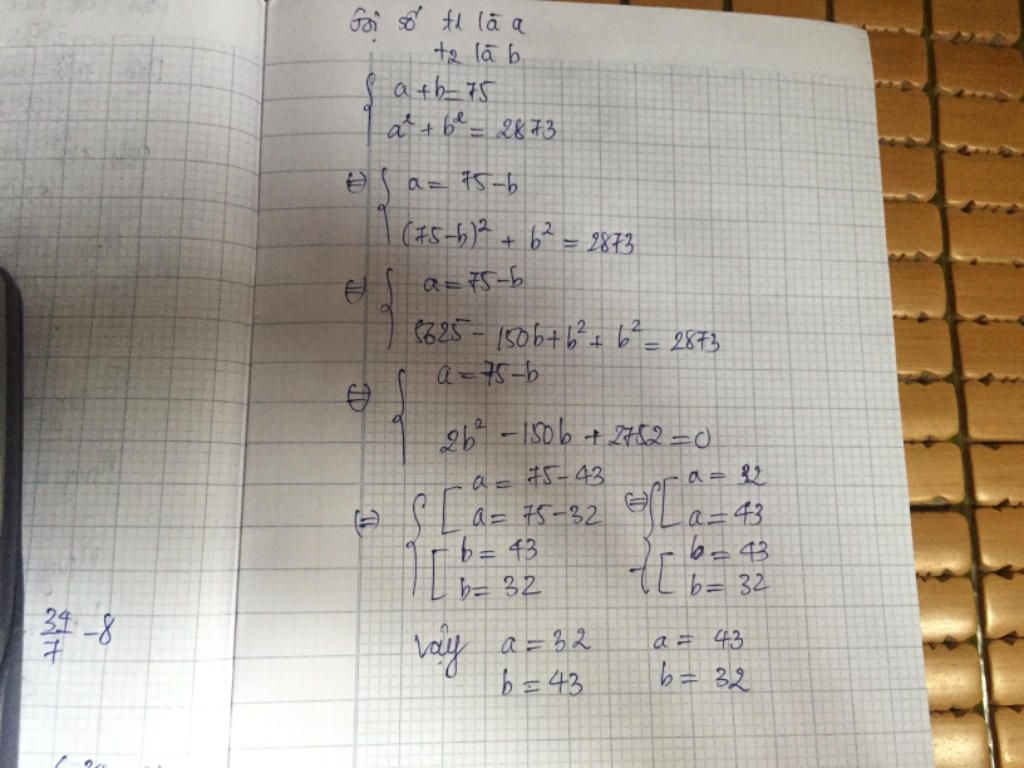 Gọi số t1 là a
t2 là b
{ a + b = 75
a² + b² = 2873
⇔ { a = 75 - b
(75 - b)² + b² = 2873
⇔ { a = 75 - b
5625 - 150b + b² + b² = 2873
⇔ { a = 75 - b
2b² - 150b + 2752 = 0
⇔ { [ a = 75 - 43 ⇔ { [ a = 32
a = 75 - 32 a = 43
[ b = 43 [ b = 43
b = 32 b = 32
Vậy a = 32 a = 43
b = 43 b = 32
34/7 - 8